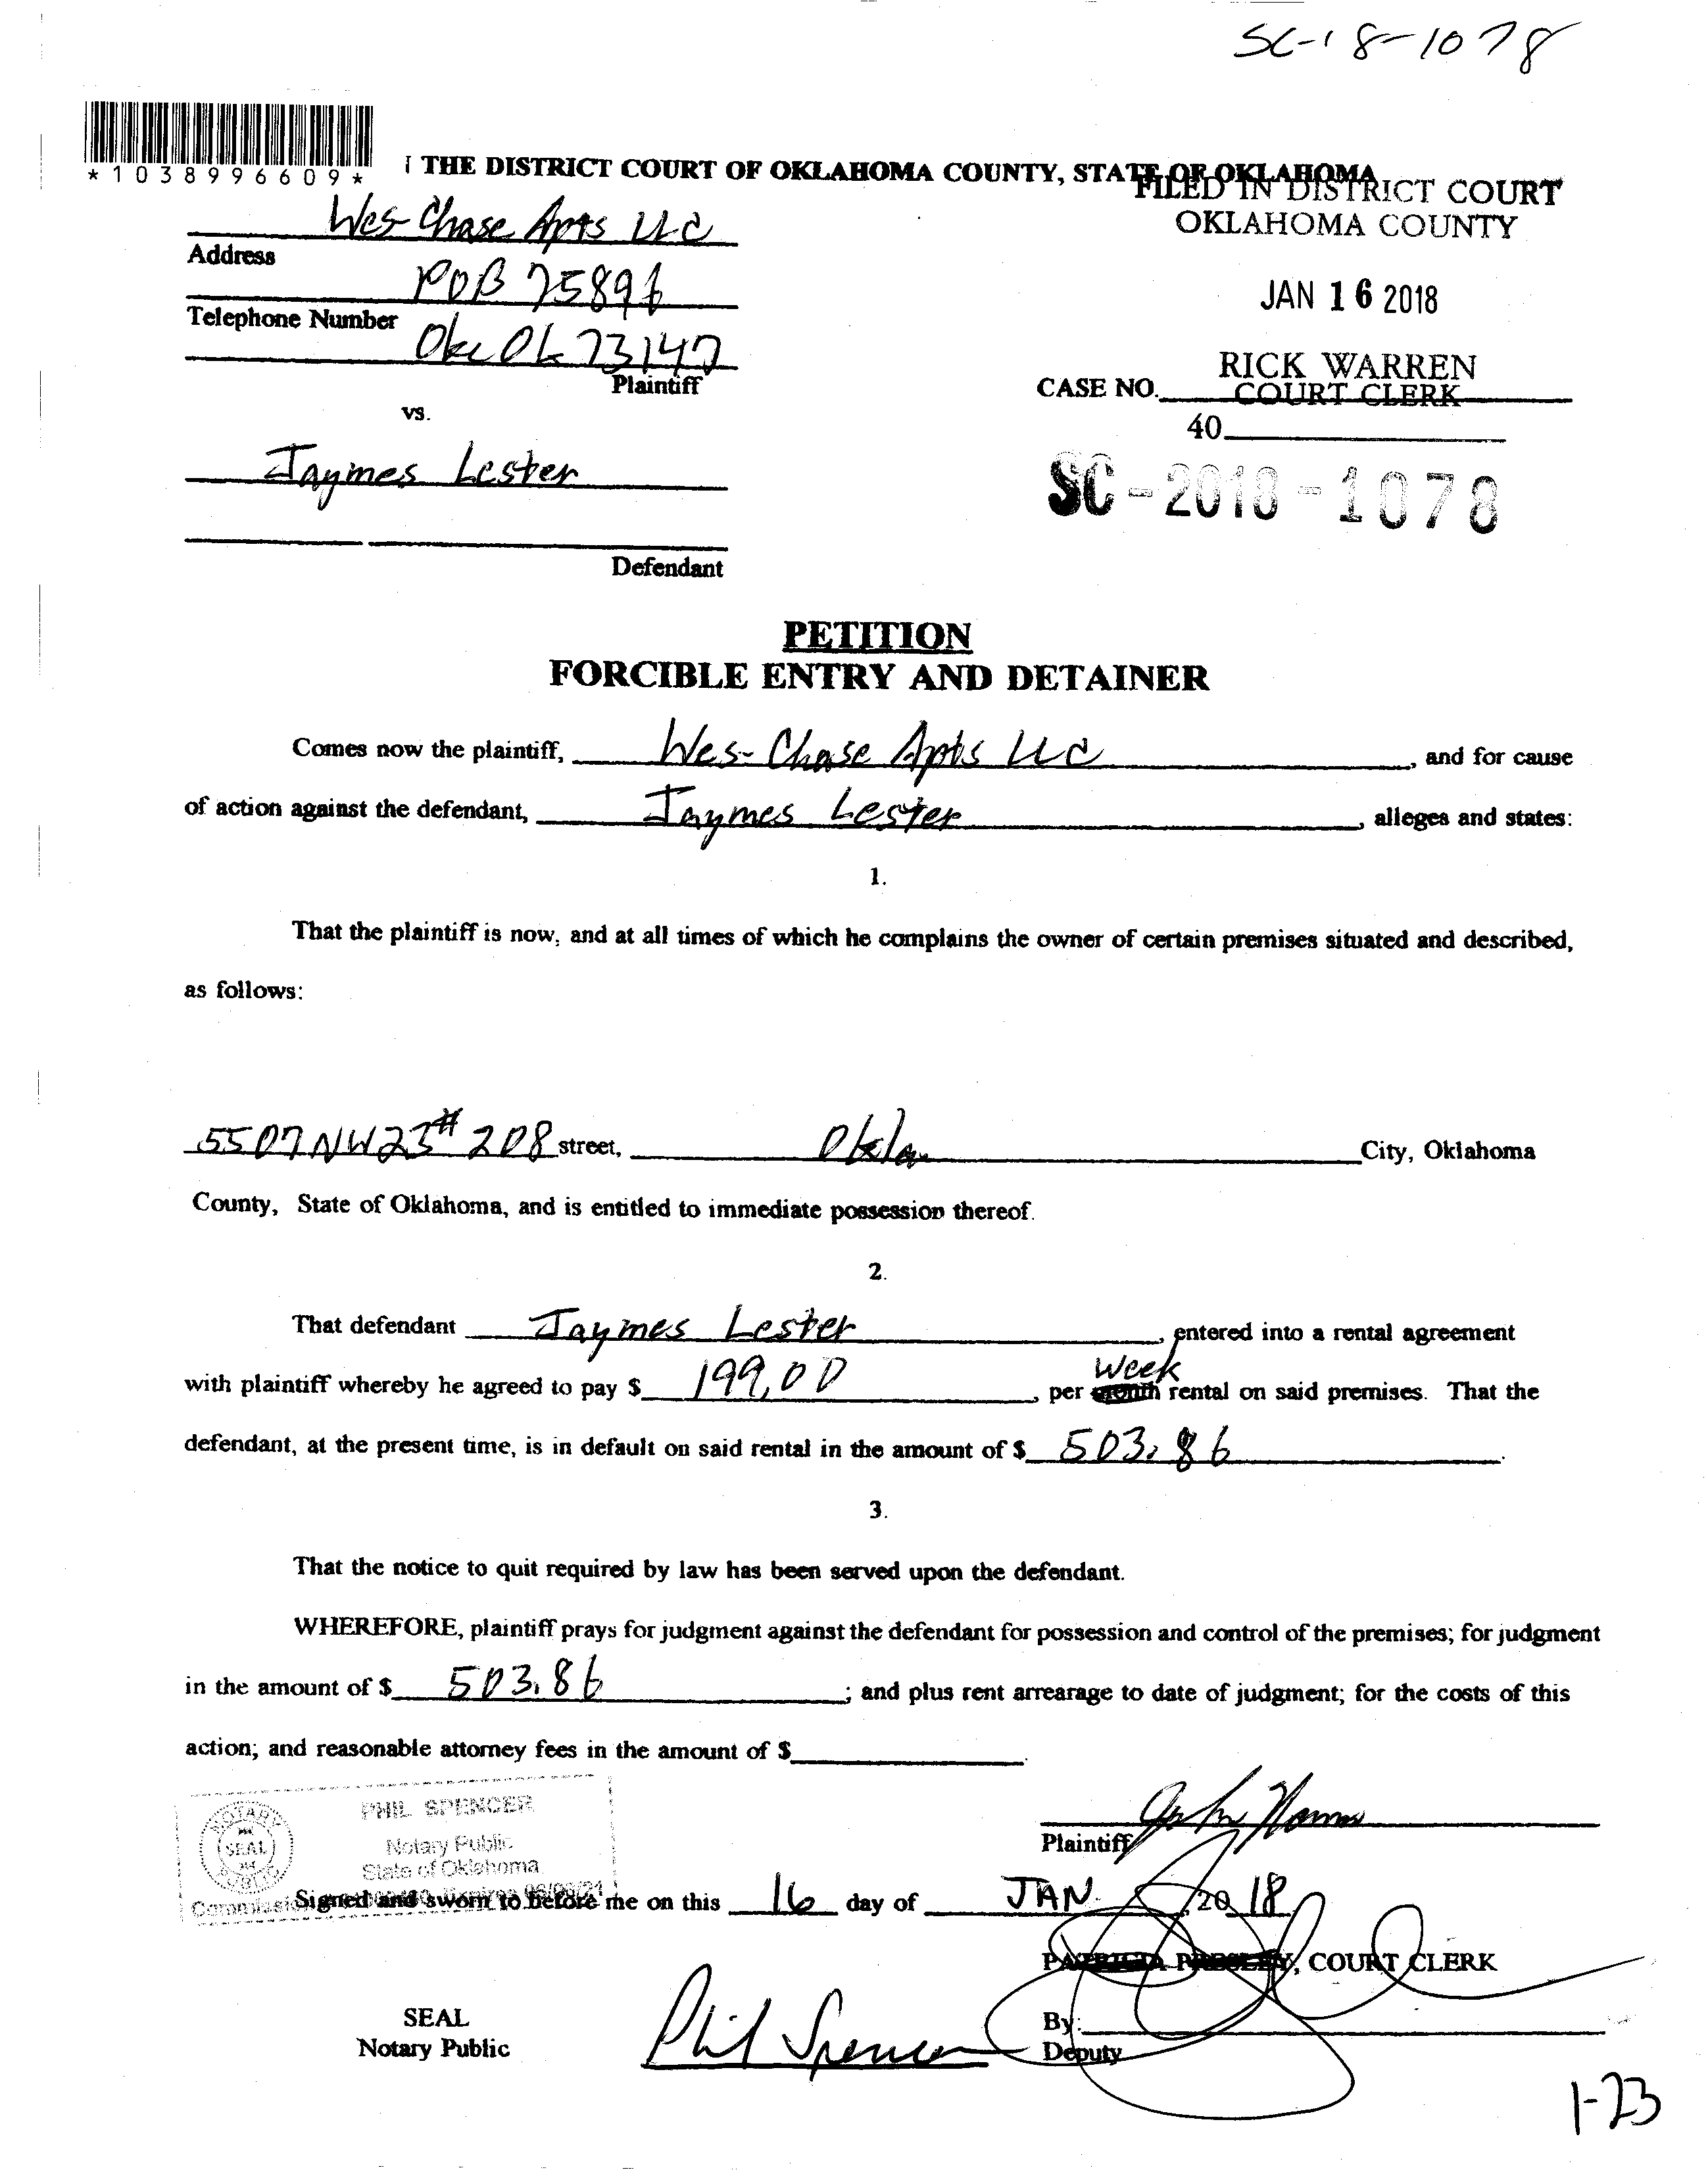 SC-18-1078
*1038996609*
THE DISTRICT COURT OF OKLAHOMA COUNTY, STATE OF OKLAHOMA
FILED IN DISTRICT COURT
OKLAHOMA COUNTY
Wes-Chase Apts LLC
Address
POB 75896
Telephone Number
Okc Ok 73147
Plaintiff
JAN 16 2018
RICK WARREN
COURT CLERK
CASE NO.
40
vs.
Jaymes Lester
SC-2018-1078
Defendant
PETITION
FORCIBLE ENTRY AND DETAINER
Comes now the plaintiff, Wes-Chase Apts LLC, and for cause
of action against the defendant, Jaymes Lester, alleges and states:
1.
That the plaintiff is now, and at all times of which he complains the owner of certain premises situated and described,
as follows:
5507 NW 23 # 208 street, Okla City, Oklahoma
County, State of Oklahoma, and is entitled to immediate possession thereof.
2.
That defendant Jaymes Lester, entered into a rental agreement
with plaintiff whereby he agreed to pay $ 199.00, per month week rental on said premises. That the
defendant, at the present time, is in default on said rental in the amount of $ 503.86.
3.
That the notice to quit required by law has been served upon the defendant.
WHEREFORE, plaintiff prays for judgment against the defendant for possession and control of the premises; for judgment
in the amount of $ 503.86; and plus rent arrearage to date of judgment; for the costs of this
action; and reasonable attorney fees in the amount of $
PHIL SPENCER
Notary Public
State of Oklahoma
NOTARY PUBLIC
SEAL
Plaintiff
Signed and sworn to before me on this 16 day of JAN, 20 18
PATRICIA PRESLEY, COURT CLERK
SEAL
Notary Public
Phil Spencer
By:
Deputy
1-23